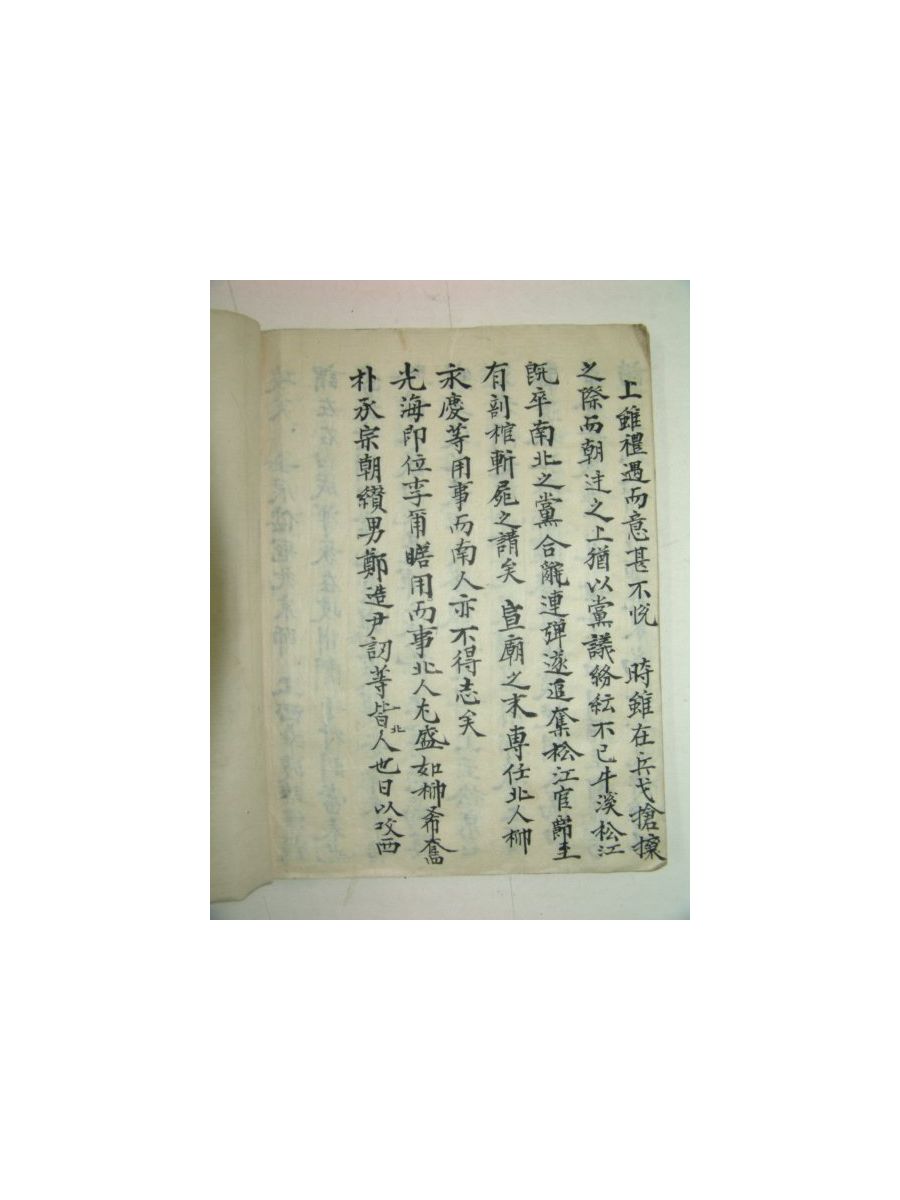 上雖禮遇而意甚不悅 時雖在兵戈搶攘
之際而朝迬之上猶以黨議紛紜不已牛溪松江
既卒南北之黨合辭連彈遂追奪松江官爵至
有剖棺斬屍之請矣 宣廟之末專任北人柳
永慶等用事而南人亦不得志矣
光海即位李爾瞻用而事北人尤盛如柳希奮
朴承宗朝纘男鄭造尹訒等皆北人也日以攻西